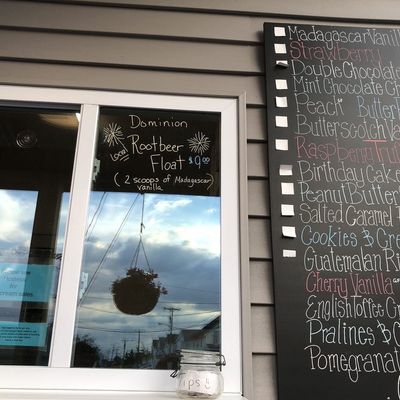 Dominion
Local
Rootbeer
Float $9.00
(2 scoops of Madagascar)
vanilla
Madagascar Vanill
Strawberry
Double Chocolate
Mint Chocolate Ch
Peach
Butterscotch
Raspberry Tru
Birthday Cake
Peanut Butter
Salted Caramel
Cookies & Cre
Guatemalan Ri
Cherry Vanilla
English Toffee
Pralines &
Pomegranat
ips